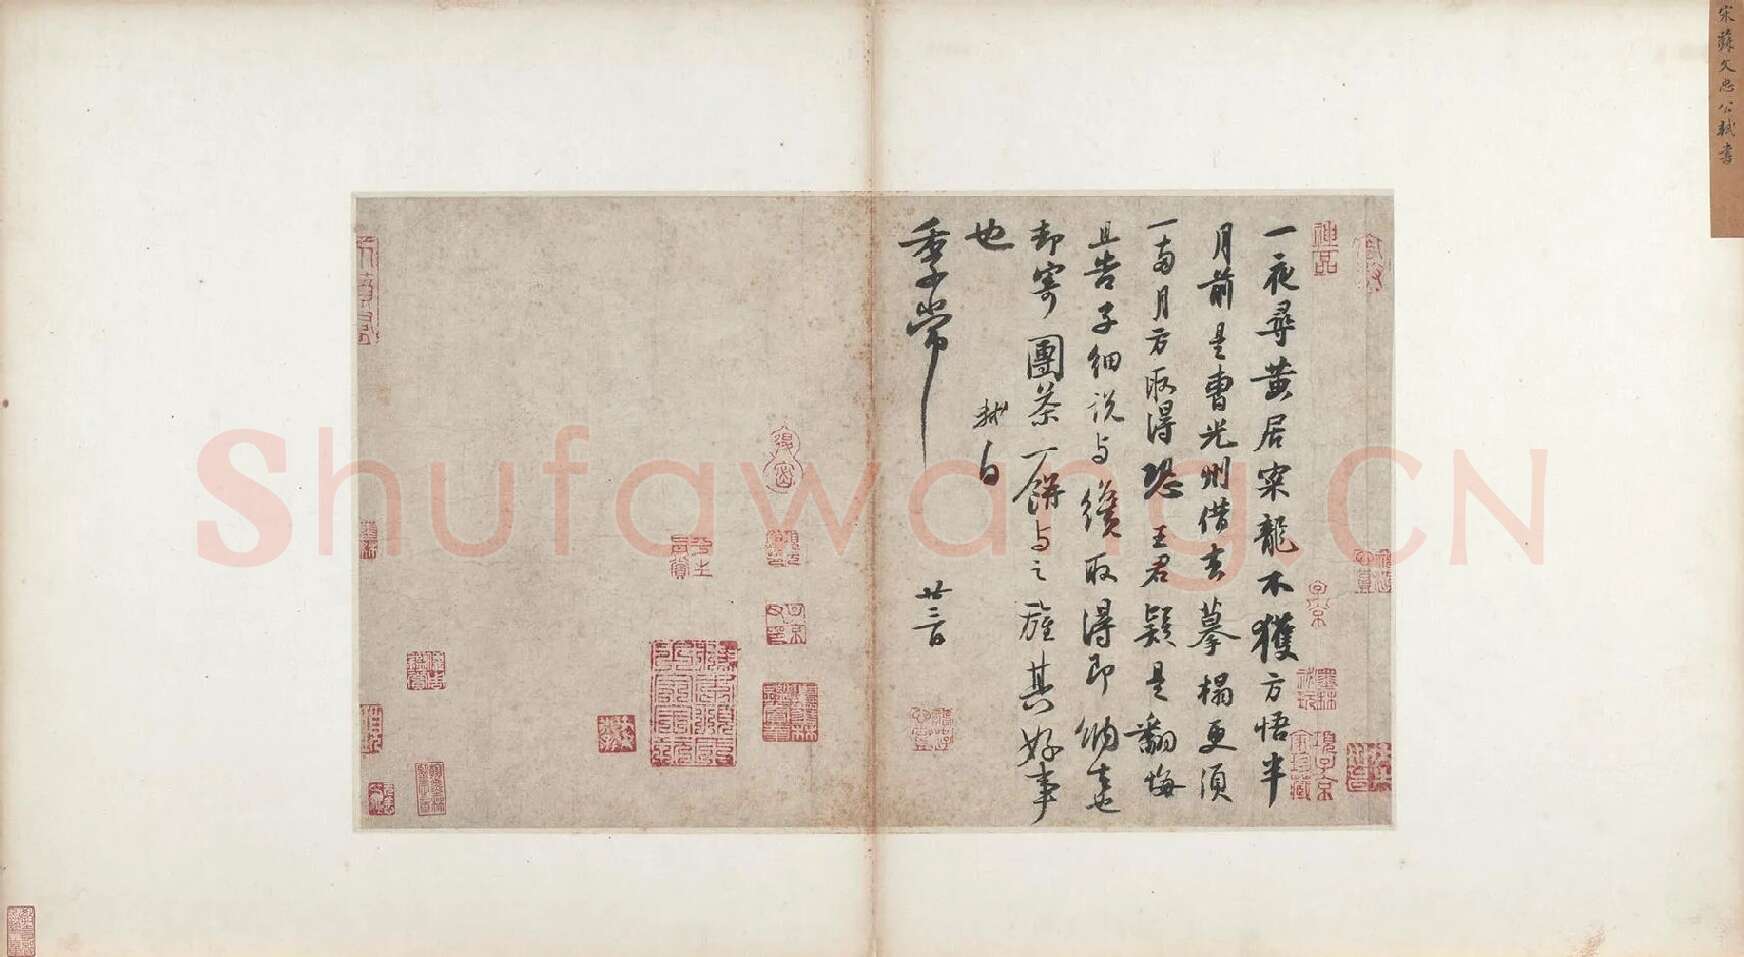 宋蘇文忠公軾書
神品
一夜尋黃居寀龍不獲方悟半
月前是曹光州借去摹榻更須
一兩月方取得恐王君疑是翻悔
且告子細說與纔取得即納去也
却寄團茶一餅與之旌其好事
也
軾白
季常
廿三日
子京
墨林祕玩
項子京家珍藏
平生真賞
Shufawang.CN